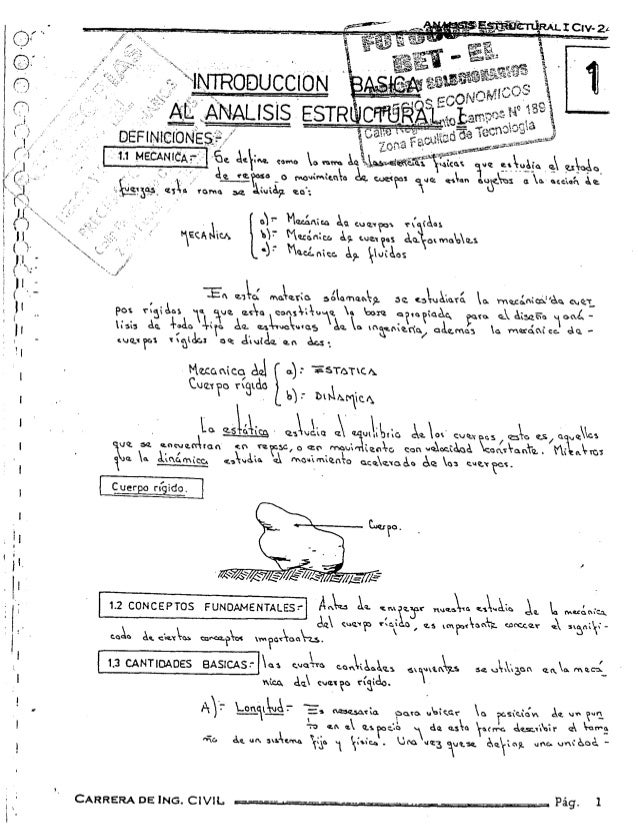 ANALISIS ESTRUCTURAL I CIV-2
FOTOCOPIAS
BET-EL
1
INTRODUCCION BASICA
AL ANALISIS ESTRUCTURAL I
PRECIOS ECONOMICOS
Campos Nº 189
Zona Facultad de Tecnología
DEFINICIONES:-
1.1 MECANICA:- Se define como la rama de las ciencias físicas que estudia el estado
de reposo o movimiento de cuerpos que estan sujetos a la acción de
fuerzas, esta rama se divide en:
MECANICA
a):- Mecánica de cuerpos rígidos
b):- Mecánica de cuerpos deformables
c):- Mecánica de fluidos
En está materia sólamente se estudiará la mecánica de cuer
pos rígidos ya que esta constituye la base apropiada para el diseño y aná-
lisis de todo tipo de estructuras de la ingeniería, además la mecánica de -
cuerpos rígidos se divide en dos:
Mecanica del
Cuerpo rígido
a):- ESTATICA
b):- DINAMICA
La estática estudia el equilibrio de los cuerpos, esto es, aquellos
que se encuentran en reposo, o en movimiento con velocidad constante. Mientras
que la dinámica estudia el movimiento acelerado de los cuerpos.
Cuerpo rígido.
Cuerpo.
1.2 CONCEPTOS FUNDAMENTALES:- Antes de empezar nuestro estudio de la mecánica
del cuerpo rígido, es importante conocer el signifi-
cado de ciertos conceptos importantes.
1.3 CANTIDADES BASICAS:- las cuatro cantidades siguientes se utilizan en la mecá
nica del cuerpo rígido.
A):- Longitud:- Es necesaria para ubicar la posición de un pun
to en el espacio y de esta forma describir el tama
ño de un sistema fijo y físico. Una vez que se define una unidad -
CARRERA DE ING. CIVIL Pág. 1